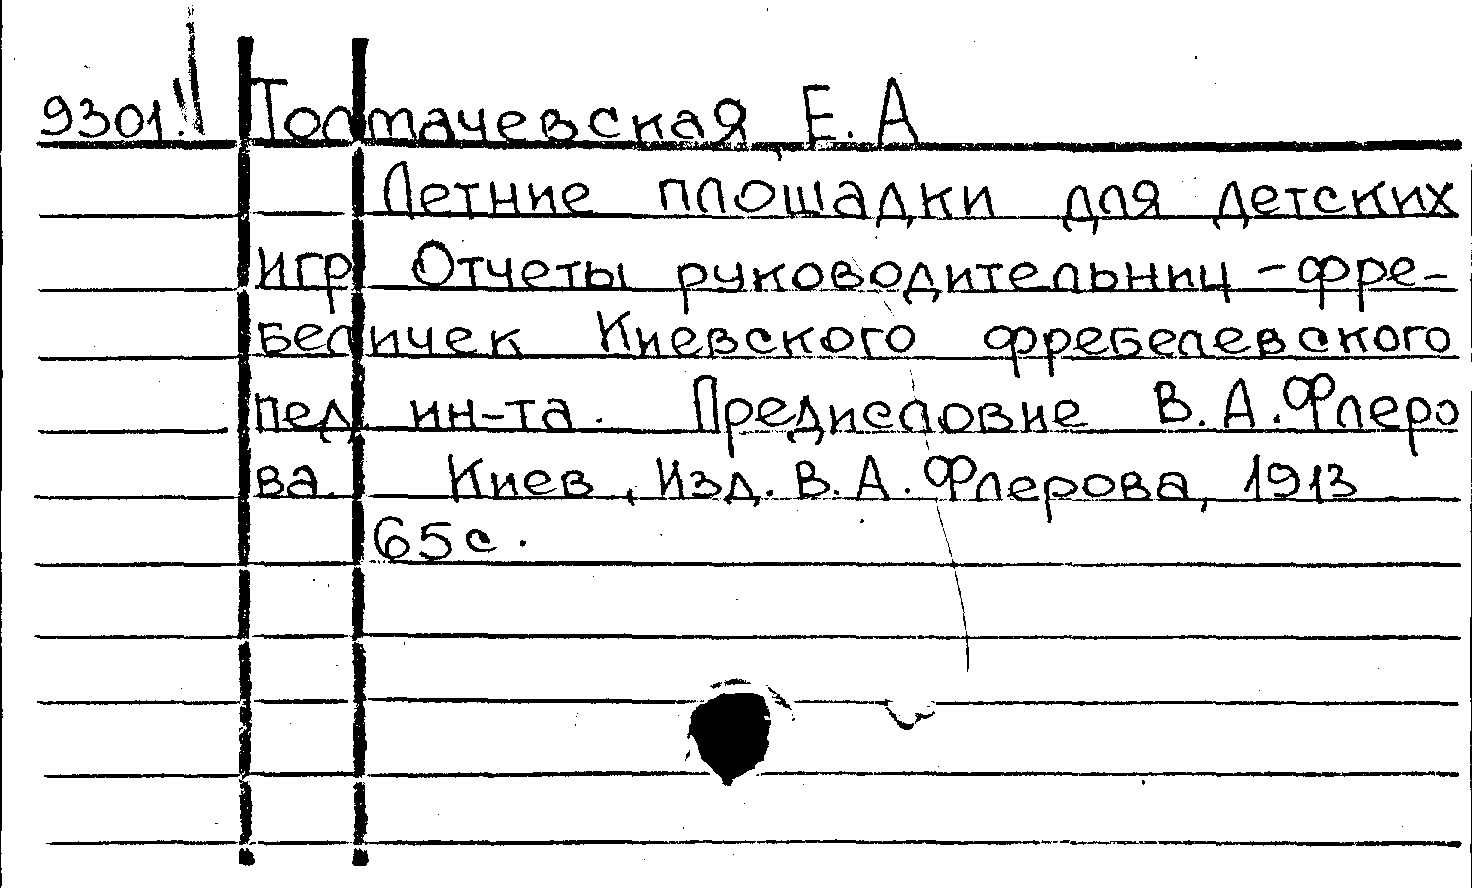 9301. Толмачевская, Е. А
Летние площадки для детских
игр Отчеты руководительниц - фре-
беличек Киевского фребелевского
пед. ин-та. Предисловие В. А. Флеро
ва. Киев, Изд. В. А. Флерова, 1913
65 с.